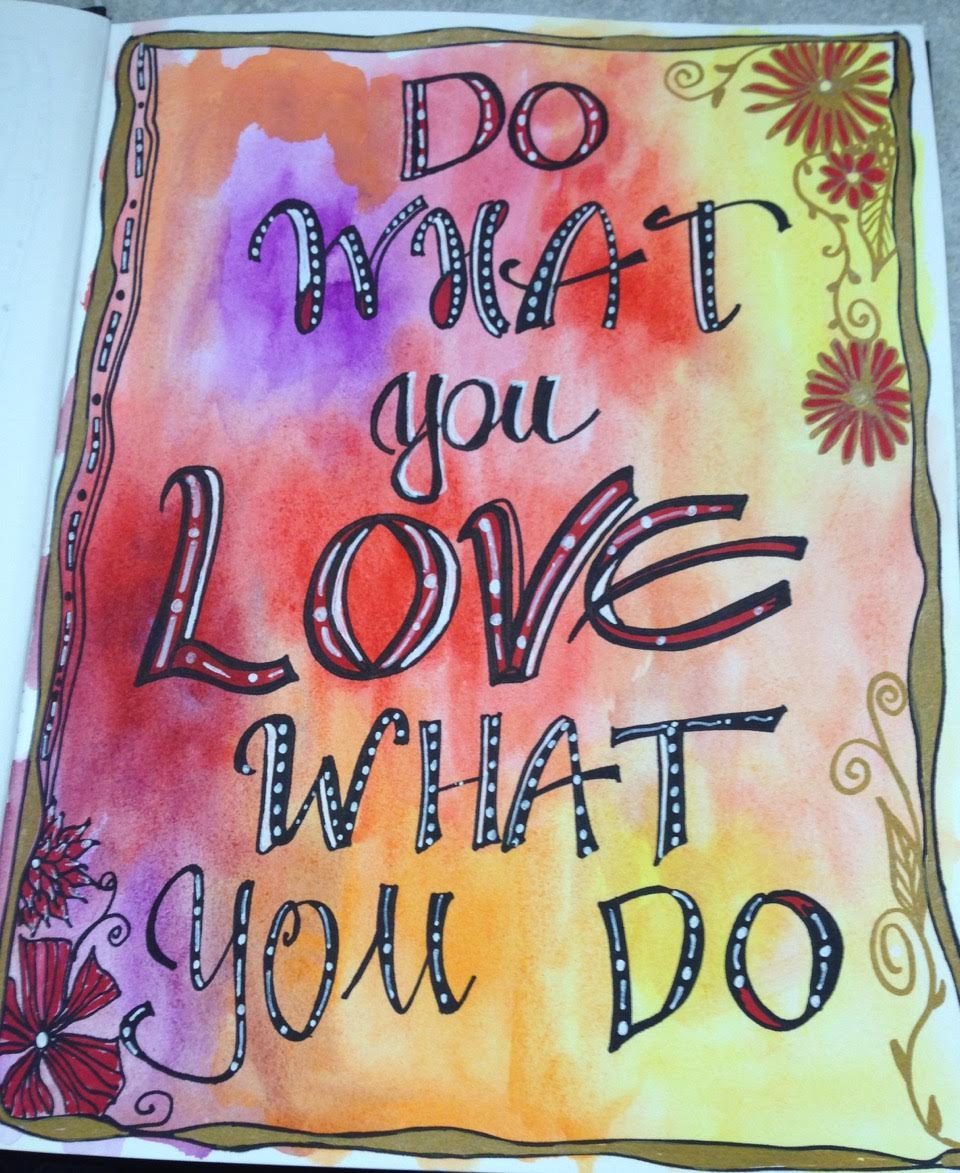 DO
WHAT
you
LOVE
WHAT
YOU DO